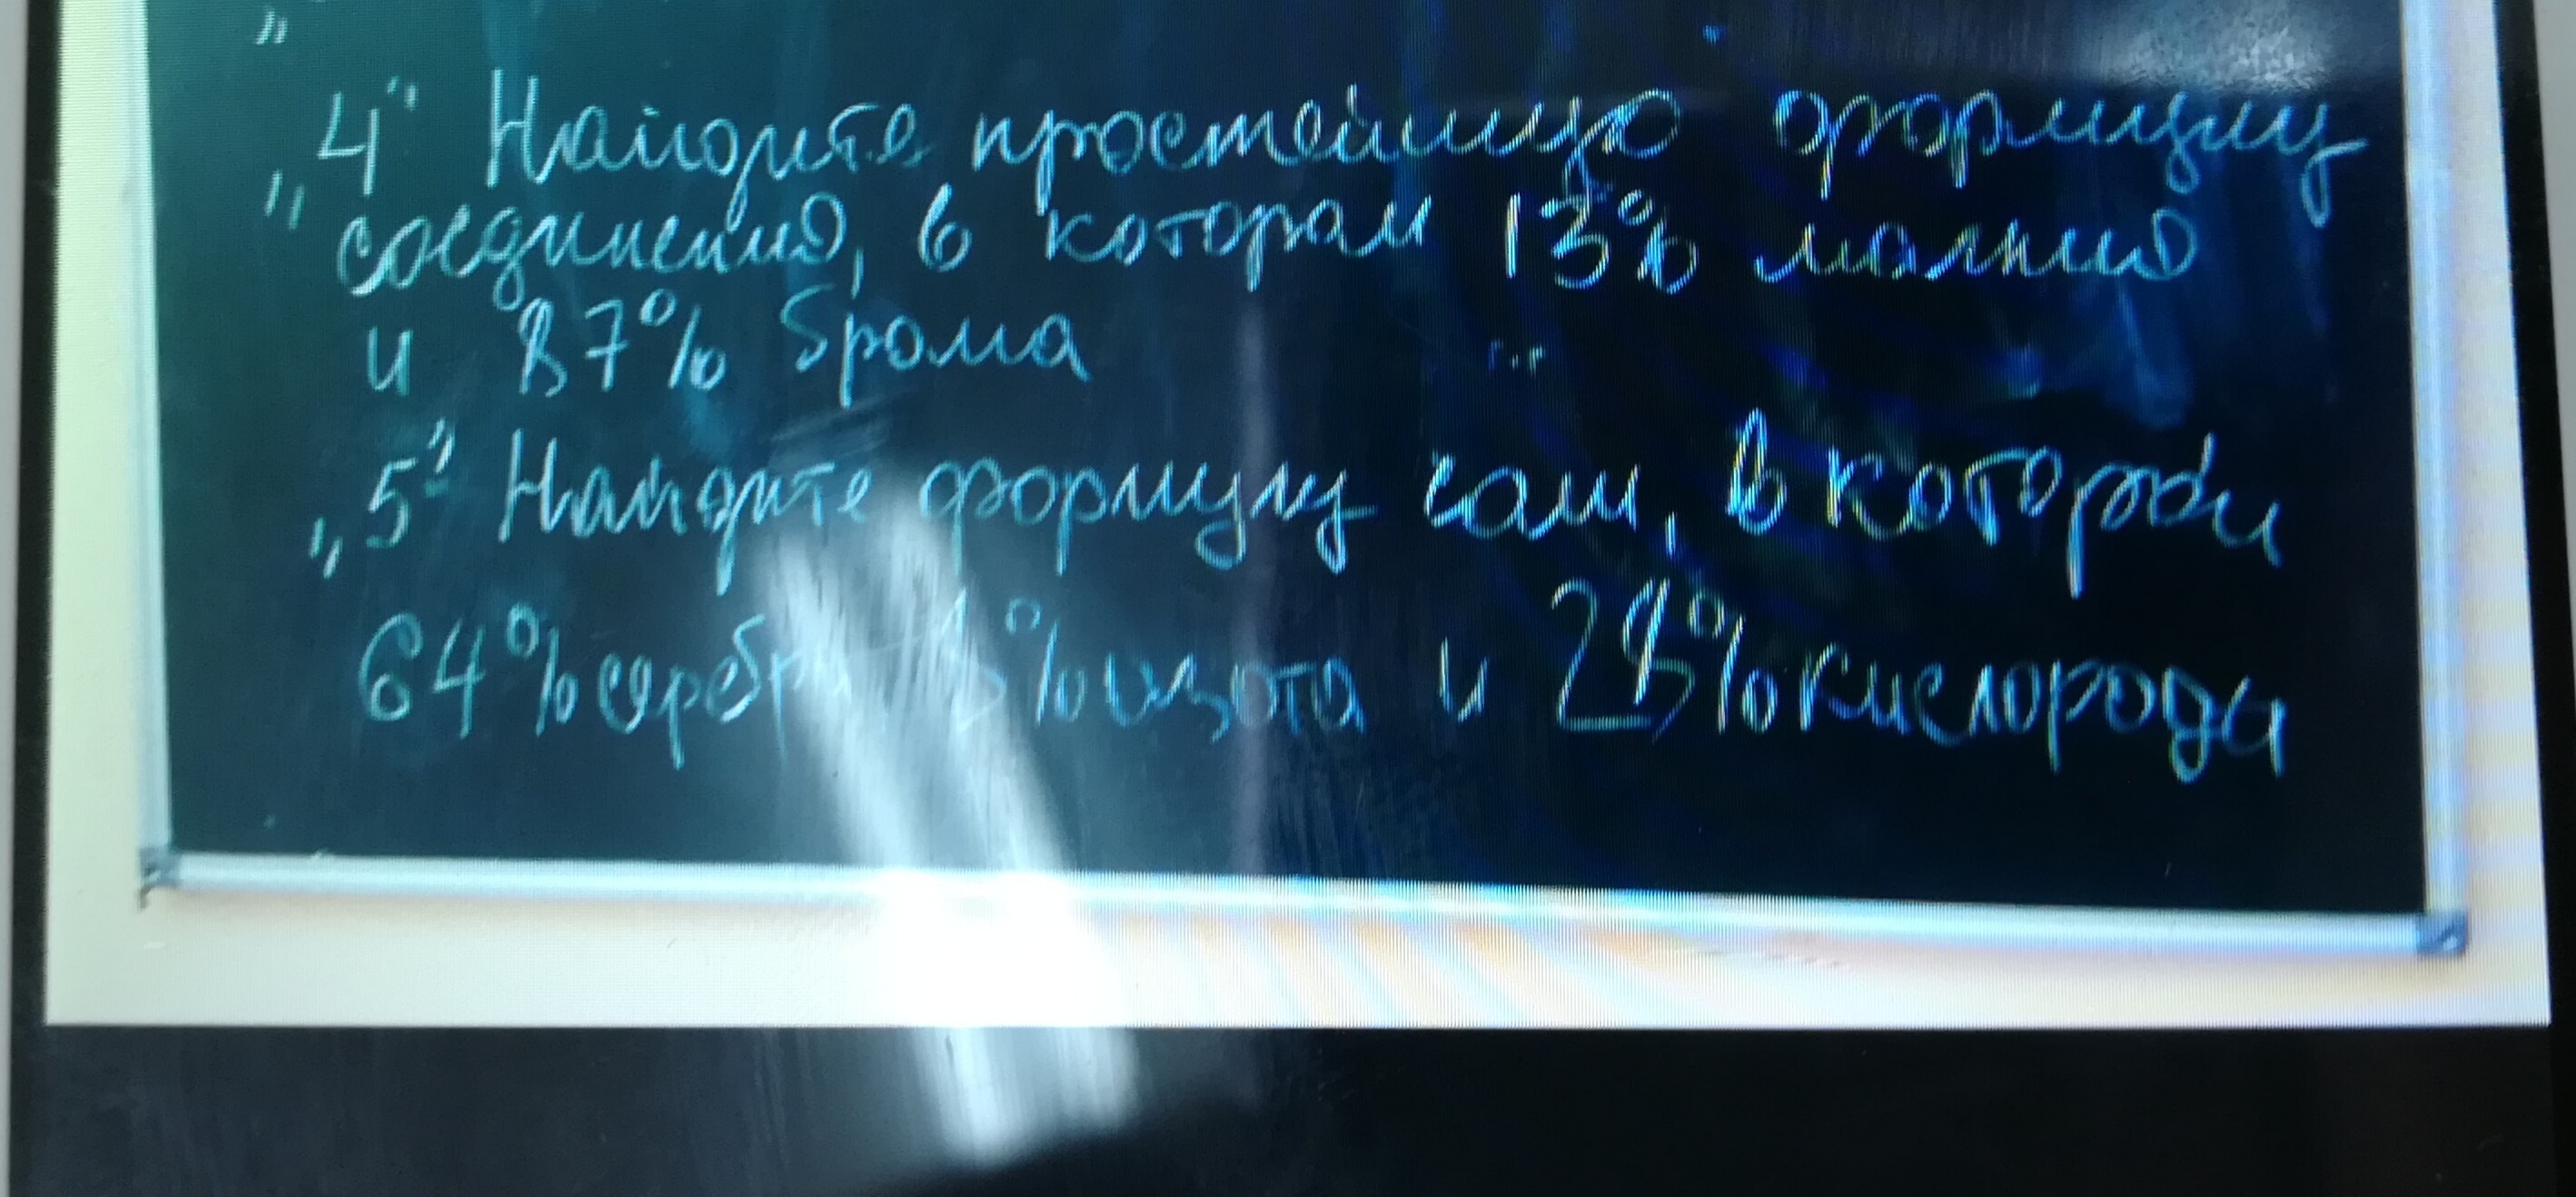 "
„4" Найдите простейшую формулу
соединения, в котором 13% магния
и 87% брома
„5" Найдите формулу соли, в которой
64% серебра % азота и 28% кислорода